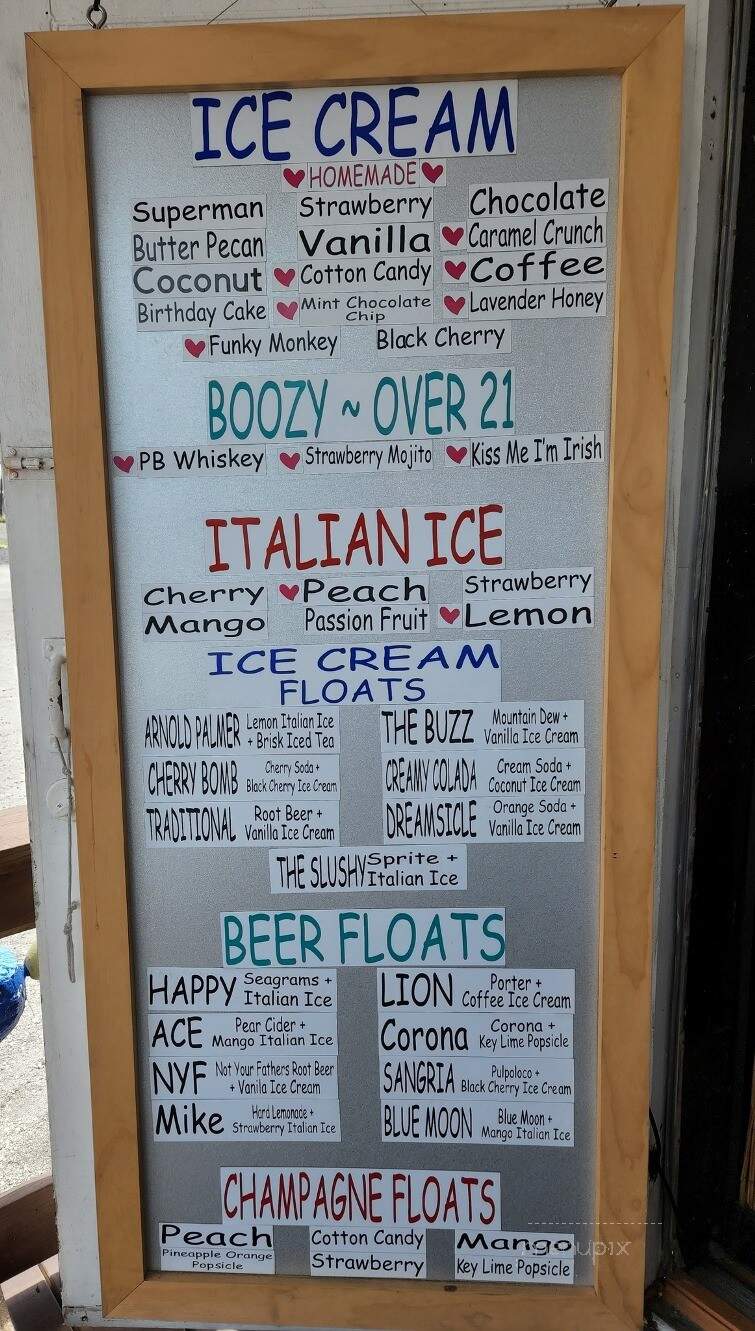 ICE CREAM
HOMEMADE
Superman Strawberry Chocolate
Butter Pecan Vanilla Caramel Crunch
Coconut Cotton Candy Coffee
Birthday Cake Mint Chocolate Chip Lavender Honey
Funky Monkey Black Cherry
BOOZY ~ OVER 21
PB Whiskey Strawberry Mojito Kiss Me I'm Irish
ITALIAN ICE
Cherry Peach Strawberry
Mango Passion Fruit Lemon
ICE CREAM
FLOATS
ARNOLD PALMER Lemon Italian Ice
+ Brisk Iced Tea
THE BUZZ Mountain Dew +
Vanilla Ice Cream
CHERRY BOMB Cherry Soda +
Black Cherry Ice Cream
CREAMY COLADA Cream Soda +
Coconut Ice Cream
TRADITIONAL Root Beer +
Vanilla Ice Cream
DREAMSICLE Orange Soda +
Vanilla Ice Cream
THE SLUSHY Sprite +
Italian Ice
BEER FLOATS
HAPPY Seagrams +
Italian Ice
LION Porter +
Coffee Ice Cream
ACE Pear Cider +
Mango Italian Ice
Corona Corona +
Key Lime Popsicle
NYF Not Your Fathers Root Beer
+ Vanila Ice Cream
SANGRIA Pulpoloco +
Black Cherry Ice Cream
Mike Hard Lemonade +
Strawberry Italian Ice
BLUE MOON Blue Moon +
Mango Italian Ice
CHAMPAGNE FLOATS
Peach Cotton Candy Mango
Pineapple Orange
Popsicle
Strawberry Key Lime Popsicle
menupix